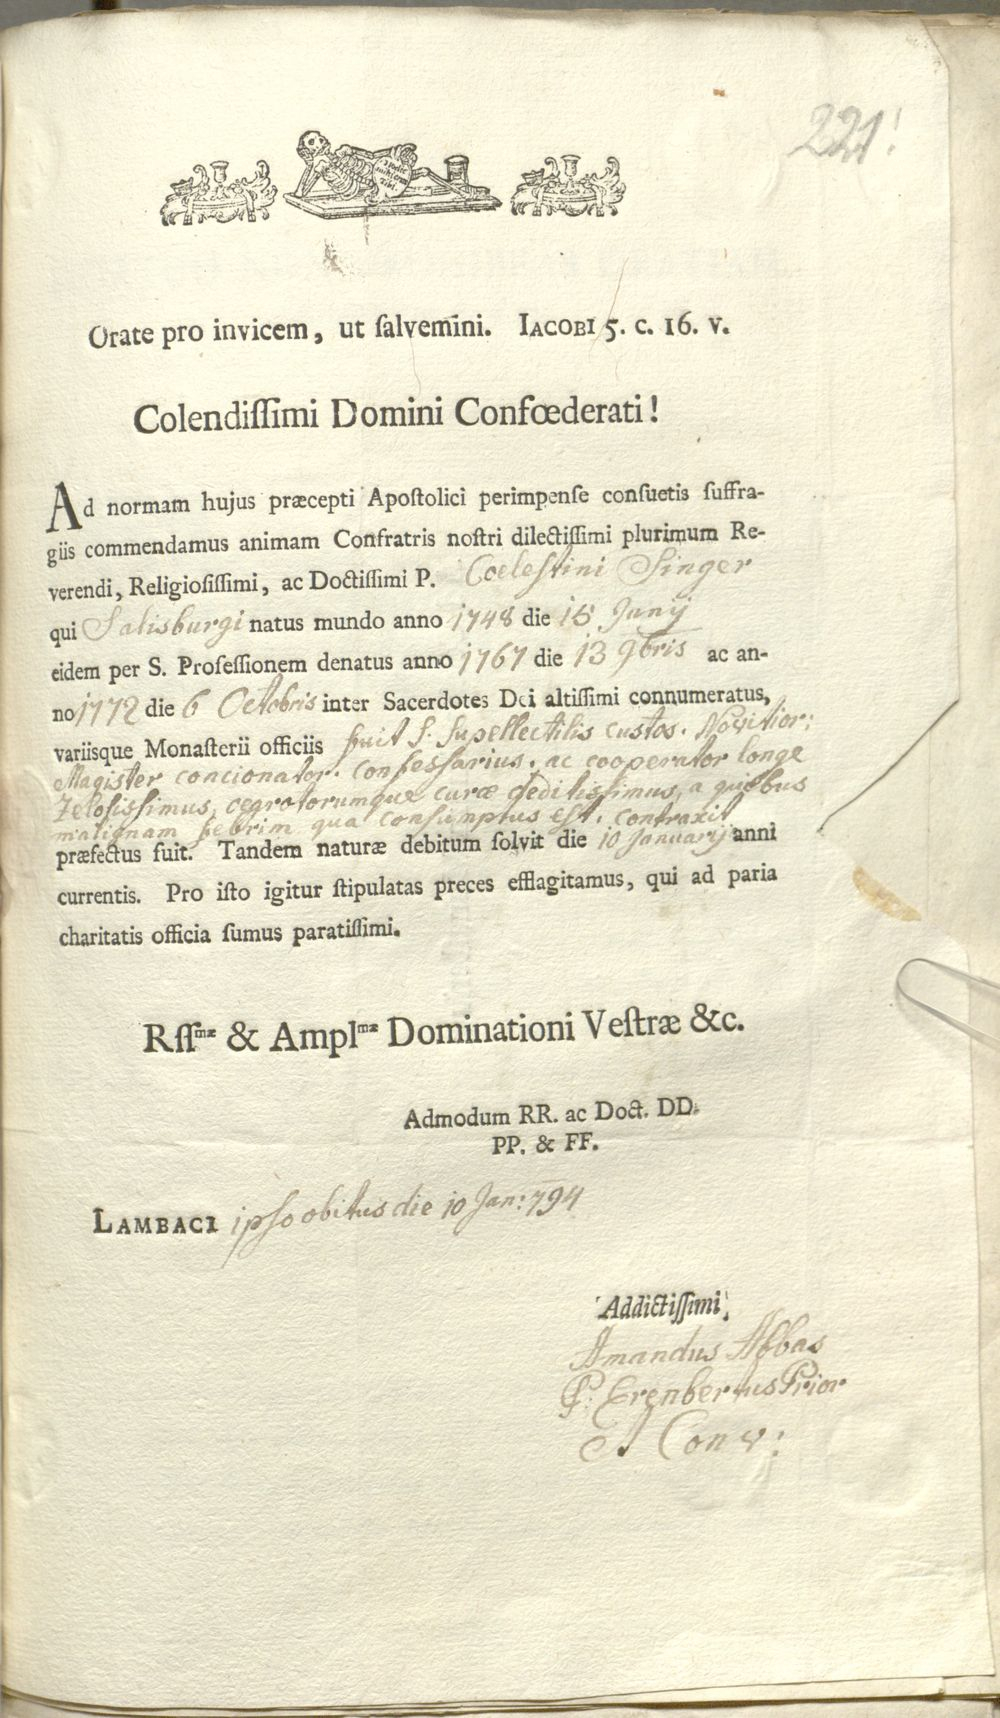 221!
Hodie
mihi cras
tibi.
Orate pro invicem, ut ſalvemini. IACOBI 5. c. 16. v.
Colendiſſimi Domini Confœderati!
Ad normam hujus præcepti Apoſtolici perimpenſe conſuetis ſuffra-
giis commendamus animam Confratris noſtri dilectiſſimi plurimum Re-
verendi, Religioſiſſimi, ac Doctiſſimi P. Coelestini Singer
qui Salisburgi natus mundo anno 1748 die 15 Junij
eidem per S. Profeſſionem denatus anno 1767 die 13 9bris ac an-
no 1772 die 6 Octobris inter Sacerdotes Dei altiſſimi connumeratus,
variisque Monaſterii officiis fuit S. Supellectilis custos. Novitior:
Magister concionator. confessarius. ac cooperator longe
Zelosissimus, aegrotorumque curæ deditissimus, a quibus
malignam febrim qua consumptus est, contraxit
præfectus fuit. Tandem naturæ debitum ſolvit die 10 Januarij anni
currentis. Pro iſto igitur ſtipulatas preces efflagitamus, qui ad paria
charitatis officia ſumus paratiſſimi.
Rſſmæ & Amplmæ Dominationi Veſtræ &c.
Admodum RR. ac Doct. DD.
PP. & FF.
LAMBACI ipso obitus die 10 Jan: 794
Addictiſſimi,
Amandus Abbas
P. Erenbertus Prior
et Conv: